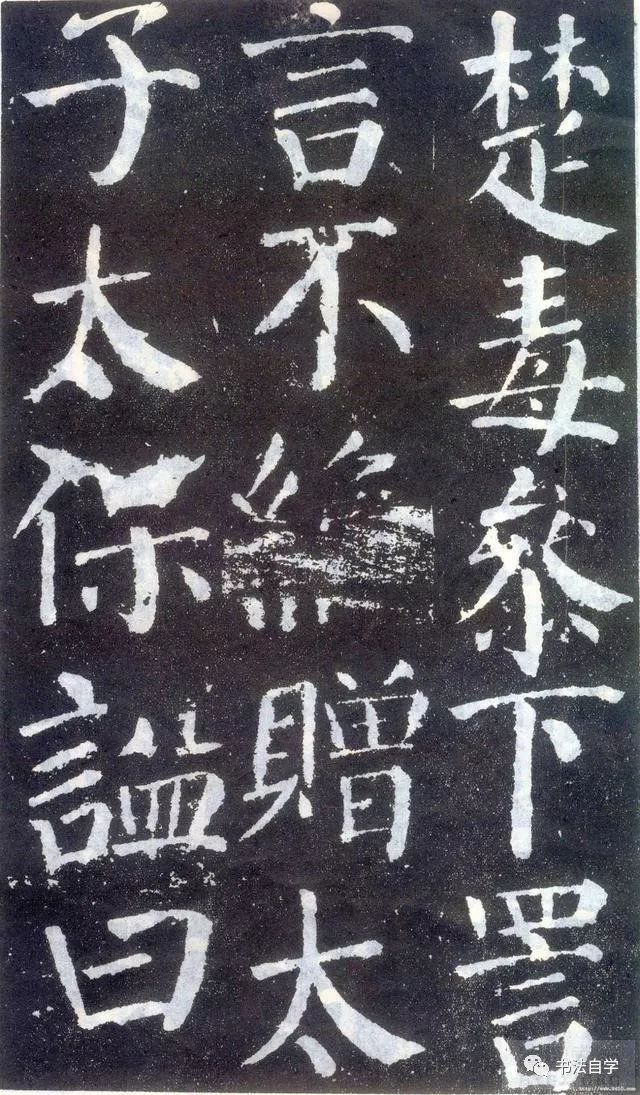 楚毒叅下詈
言不絶贈太
子太保謚曰
书法自学